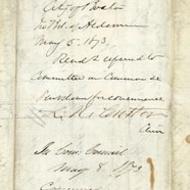 City of Boston
In Bd. of Aldermen
May 5. 1873.
Read & referred to
Committee on Common &c
for concurrence
Clerk
In Com. Council
May 8 1873
Concurred